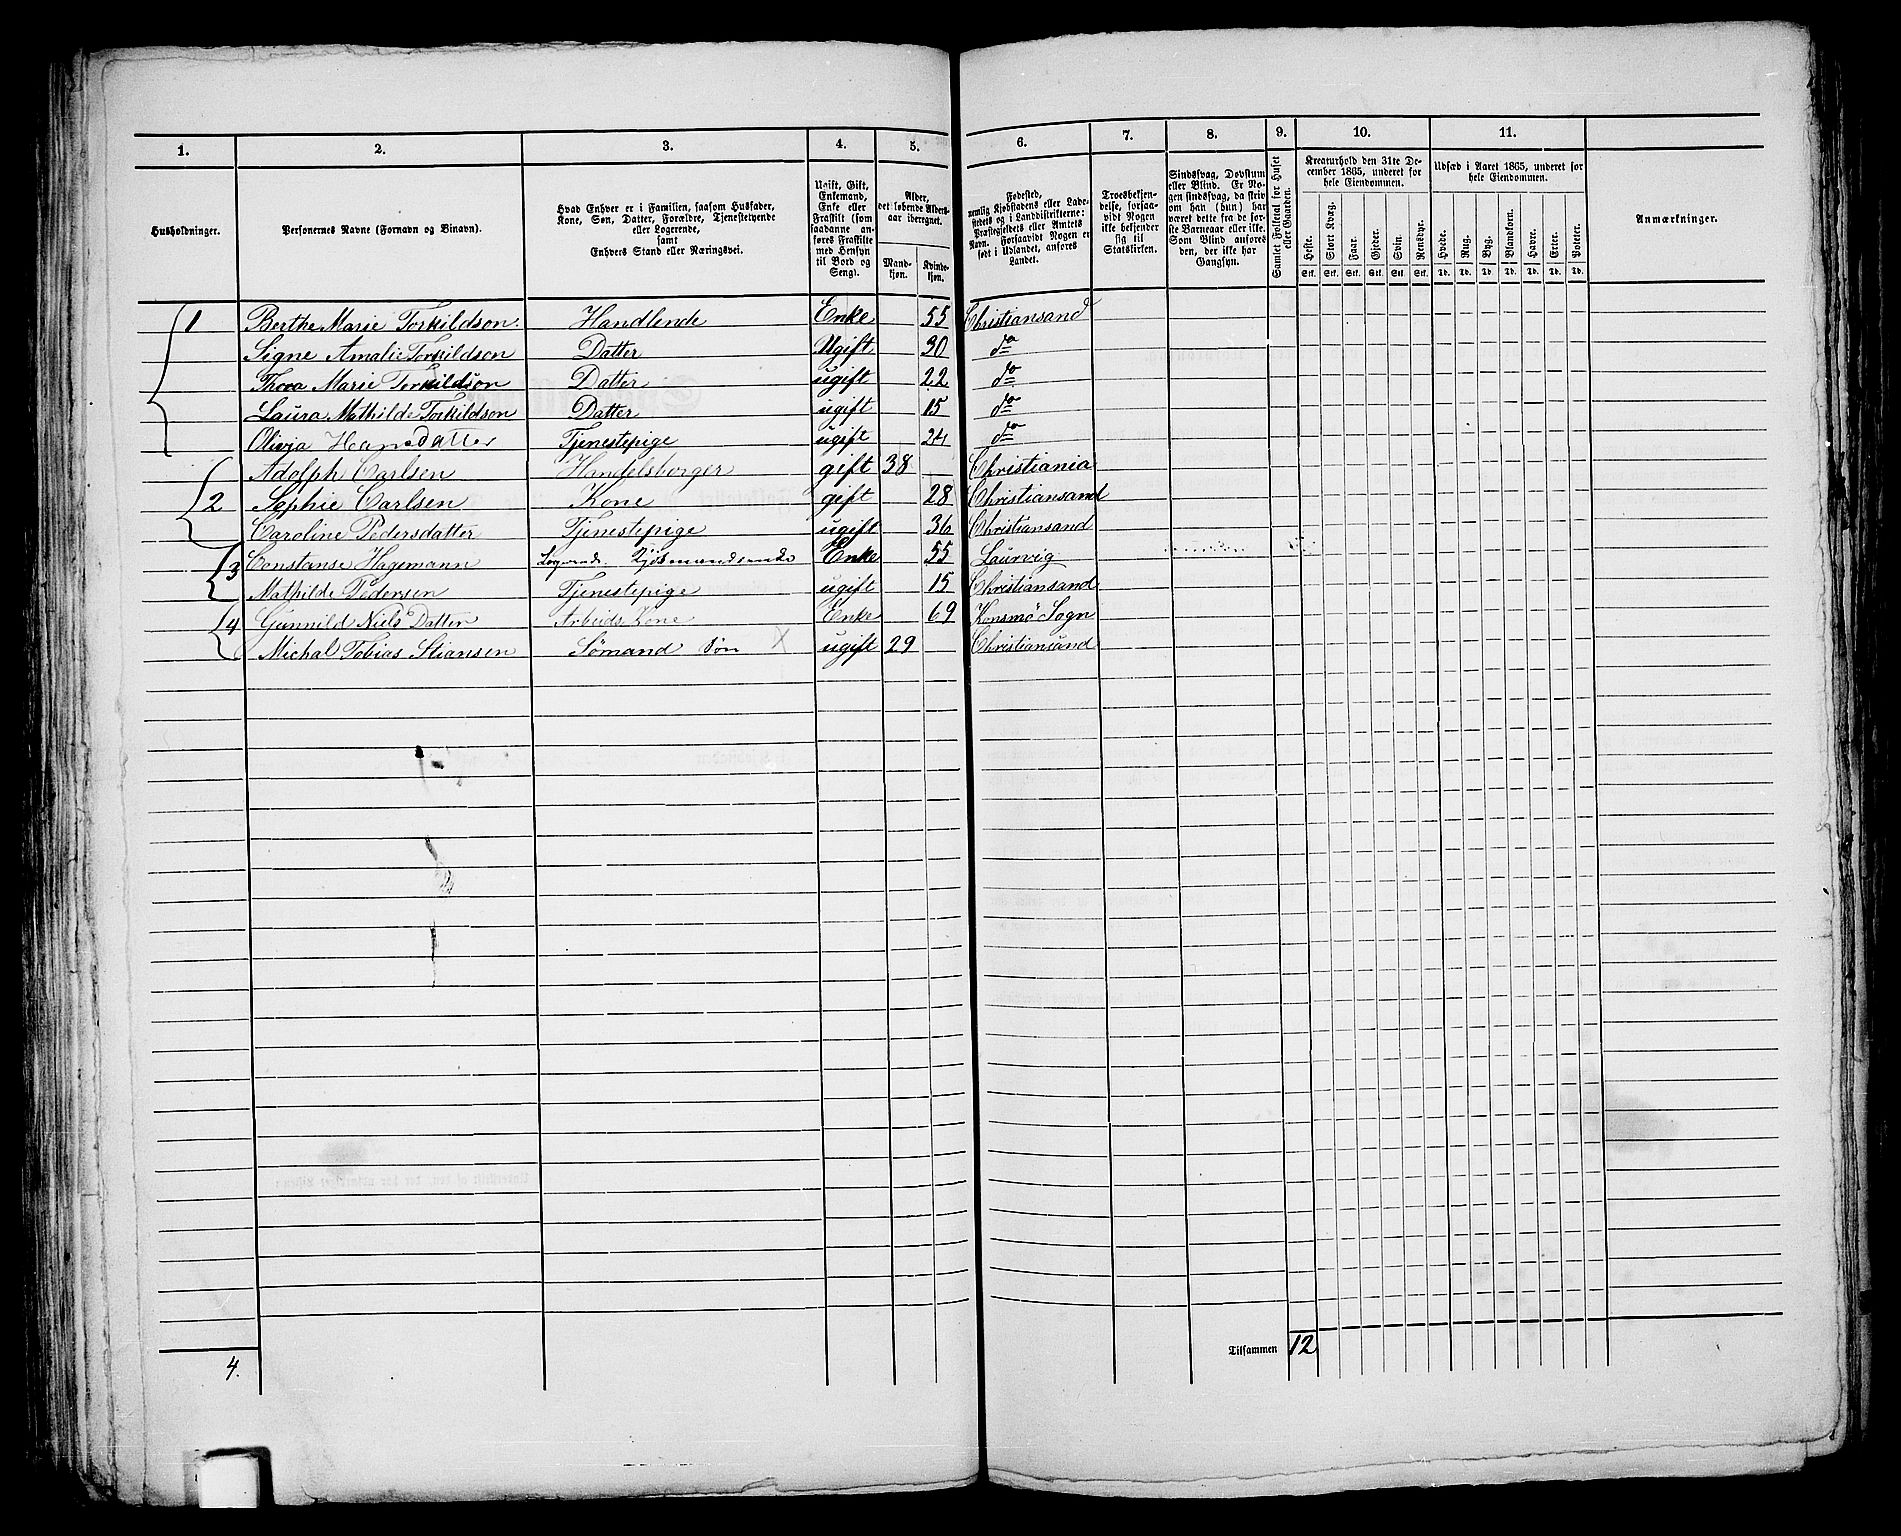 1. 2. 3. 4. 5. 6. 7. 8. 9. 10. 11.
Husholdninger.
Personernes Navne (Fornavn og Binavn).
Hvad Enhver er i Familien, saasom Husfader,
Kone, Søn, Datter, Forældre, Tjenestetyende
eller Logerende,
samt
Enhvers Stand eller Næringsvei.
Ugift, Gift,
Enkemand,
Enke eller
Fraskilt (som
saadanne an-
føres Fraskilte
med Hensyn
til Bord og
Seng).
Alder,
det løbende Alders-
aar iberegnet.
Mand-
kjøn.
Kvinde-
kjøn.
Fødested,
nemlig Kjøbstadens eller Lade-
stedets og i Landdistrikterne:
Præstegjeldets eller Amtets
Navn. Forsaavidt Nogen er
født i Udlandet, anføres
Landet.
Troesbekjen-
delse, forsaa-
vidt Nogen
ikke bekjender
sig til
Statskirken.
Sindssvag, Døvstum
eller Blind. Er No-
gen sindssvag, da skriv
om han (hun) har
været dette fra de før-
ste Barneaar eller ikke.
Som Blind anføres
den, der ikke har
Gangsyn.
Samlet Folketal for Huset
eller Gaarden.
Kreaturhold den 31te De-
cember 1865, underet for
hele Eiendommen.
Heste. Stort Kvæg. Faar. Gjeder. Svin. Rensdyr.
Stk. Stk. Stk. Stk. Stk. Stk.
Udsæd i Aaret 1865, underet for
hele Eiendommen.
Hvede. Rug. Byg. Blandkorn. Havre. Erter. Poteter.
Td. Td. Td. Td. Td. Td. Td.
Anmærkninger.
1 Berthe Marie Torkildson. Handlende Enke 55 Christiansand
Signe Amalie Torkildson Datter Ugift 30 do
Thora Marie Torkildson Datter ugift 22 do
Laura Mathilde Torkildson Datter ugift 15 do
Olivia Hansdatter Tjenestepige ugift 24 do
Adolph Carlsen Handelsborger gift 38 Christiania
2 Sophie Carlsen Kone gift 28 Christiansand
Caroline Pedersdatter Tjenestepige ugift 36 Christiansand
3 Constanse Hagemann Logerende. Enke 55 Laurvig
Mathilde Pedersen Tjenestepige ugift 15 Christiansand
4 Gunnild Niels Datter Arbeids Kone Enke 69 Konsmo Sogn
Michal Tobias Stiansen Sømand Søn X ugift 29 Christiansand
Tilsammen 12
4.